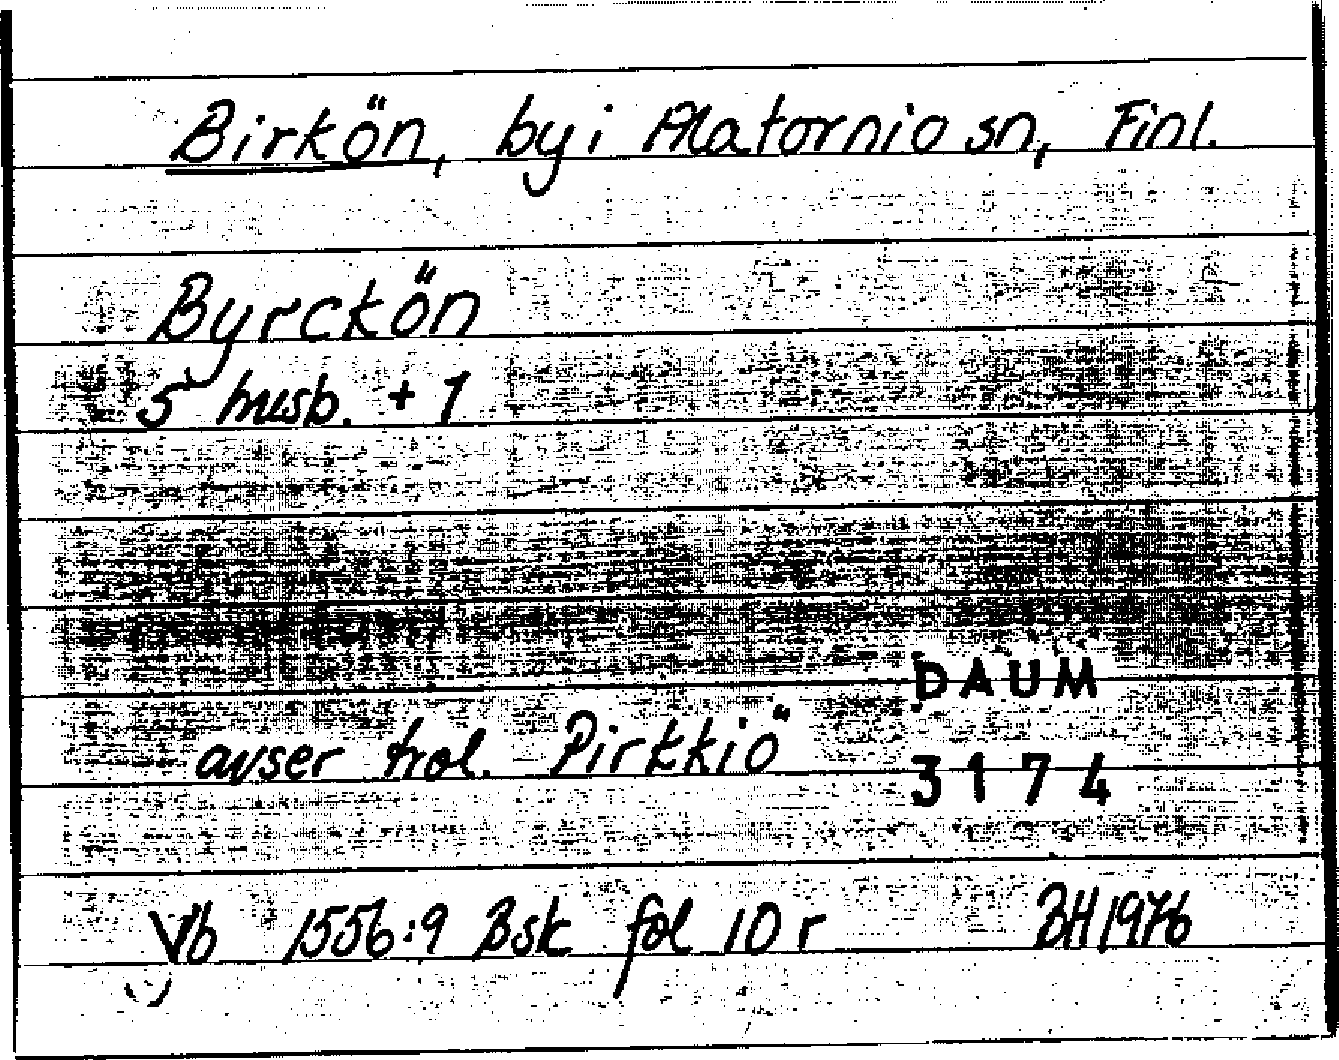 Birkön, by i Alatornio sn, Finl.
Byrckön
5 husb. + 1
DAUM
avser trol. Pirkkiö
3174
Vb 1556:9 Bsk fol 10 r BH 1976